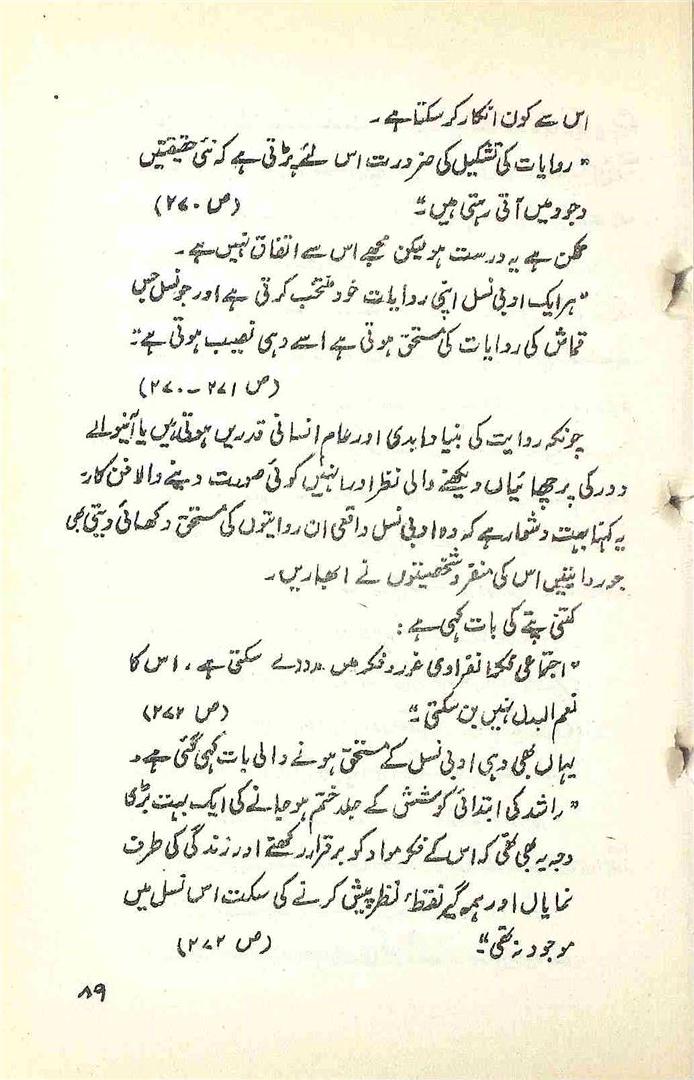 اس سے کون انکار کر سکتا ہے۔
"روایات کی تشکیل کی ضرورت اس لئے پڑتی ہے کہ نئی حقیقتیں
وجود میں آتی رہتی ہیں۔" (ص ۲۷۰)
ممکن ہے یہ درست ہو لیکن مجھے اس سے اتفاق نہیں ہے۔
"ہر ایک ادبی نسل اپنی روایات خود منتخب کرتی ہے اور جو نسل جس
قماش کی روایات کی مستحق ہوتی ہے اسے وہی نصیب ہوتی ہے"
(ص ۲۷۱ - ۲۷۰)
چونکہ روایت کی بنیاد ابدی اور عام انسانی قدریں ہوتی ہیں یا آنیوالے
دور کی پرچھائیاں دیکھنے والی نظر اور انہیں کوئی صورت دینے والا فن کار۔
یہ کہنا بہت دشوار ہے کہ وہ ادبی نسل واقعی ان روایتوں کی مستحق دکھائی دیتی تھی
جو روایتیں اس کی منفرد شخصیتوں نے ابھاریں۔
کتنی پتے کی بات کہی ہے:
"اجتماعی فکر انفرادی غور و فکر میں مدد دے سکتی ہے، اس کا
نعم البدل نہیں بن سکتی۔" (ص ۲۷۲)
یہاں بھی وہی ادبی نسل کے مستحق ہونے والی بات کہی گئی ہے۔
"راشد کی ابتدائی کوشش کے جلد ختم ہو جانے کی ایک بہت بڑی
وجہ یہ بھی تھی کہ اس کے فکر مواد کو برقرار رکھنے اور زندگی کی طرف
نمایاں اور ہمہ گیر نقطۂ نظر پیش کرنے کی سکت اس نسل میں
موجود نہ تھی۔" (ص ۲۷۲)
۸۹